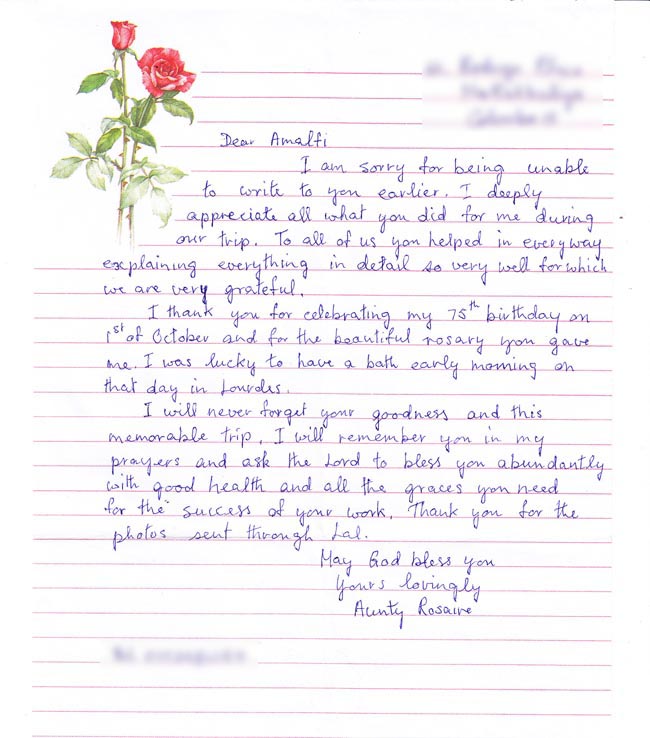 Dear Amalfi
I am sorry for being unable
to write to you earlier. I deeply
appreciate all what you did for me during
our trip. To all of us you helped in everyway
explaining everything in detail so very well for which
we are very grateful.
I thank you for celebrating my 75th birthday on
1st of October and for the beautiful rosary you gave
me. I was lucky to have a bath early morning on
that day in Lourdes.
I will never forget your goodness and this
memorable trip. I will remember you in my
prayers and ask the Lord to bless you abundantly
with good health and all the graces you need
for the success of your work. Thank you for the
photos sent through Lal.
May God bless you
Yours lovingly
Aunty Rosaire